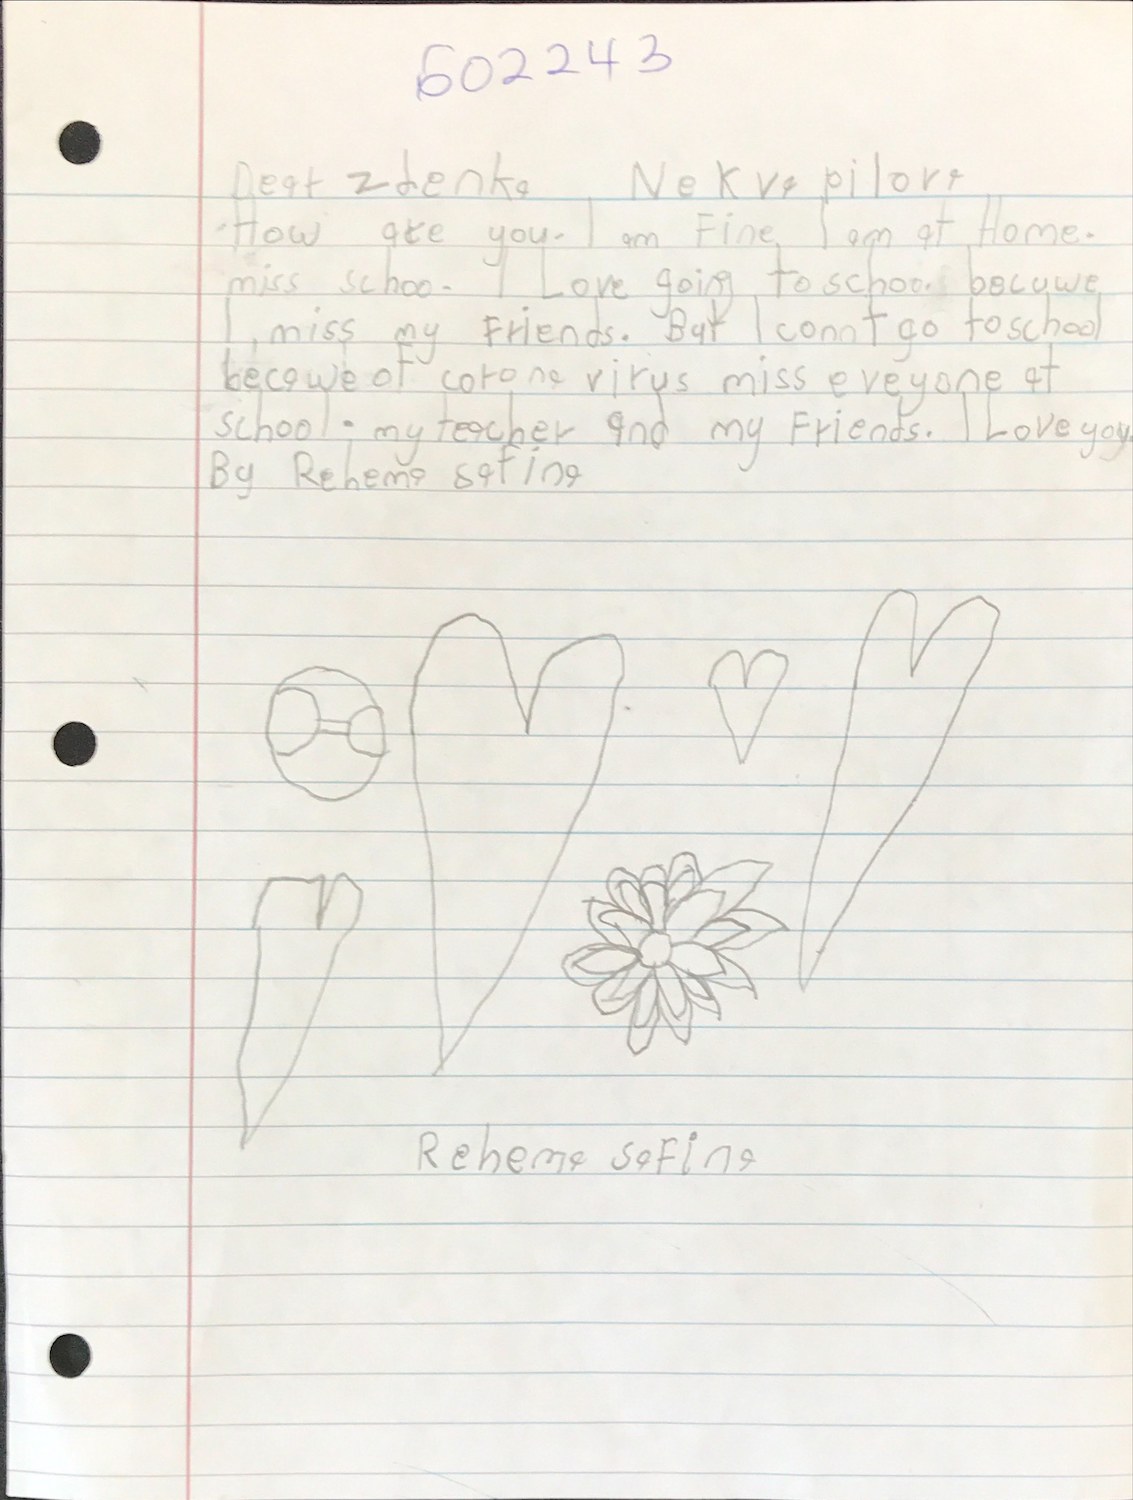 602243
Dear zdenka Nekvapilova
How are you. I am Fine I am at Home.
miss schoo. I Love going to school becuwe
I miss my Friends. But I connt go to school
becawe of corona virus miss eveyone at
school. my teacher and my Friends. I Love you
By Rehema safina
Rehema safina